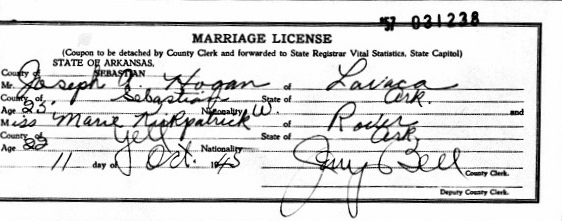 '57 031238
MARRIAGE LICENSE
(Coupon to be detached by County Clerk and forwarded to State Registrar Vital Statistics, State Capitol)
STATE OF ARKANSAS,
County of SEBASTIAN
Mr. Joseph A. Hogan of Lavaca
County of Sebastian State of Ark.
Age 25. Nationality W. and
Miss Marie Kirkpatrick of Rover
County of Yell State of Ark
Age 22 Nationality
11 day of Oct. 1945
Bell
County Clerk.
Deputy County Clerk.